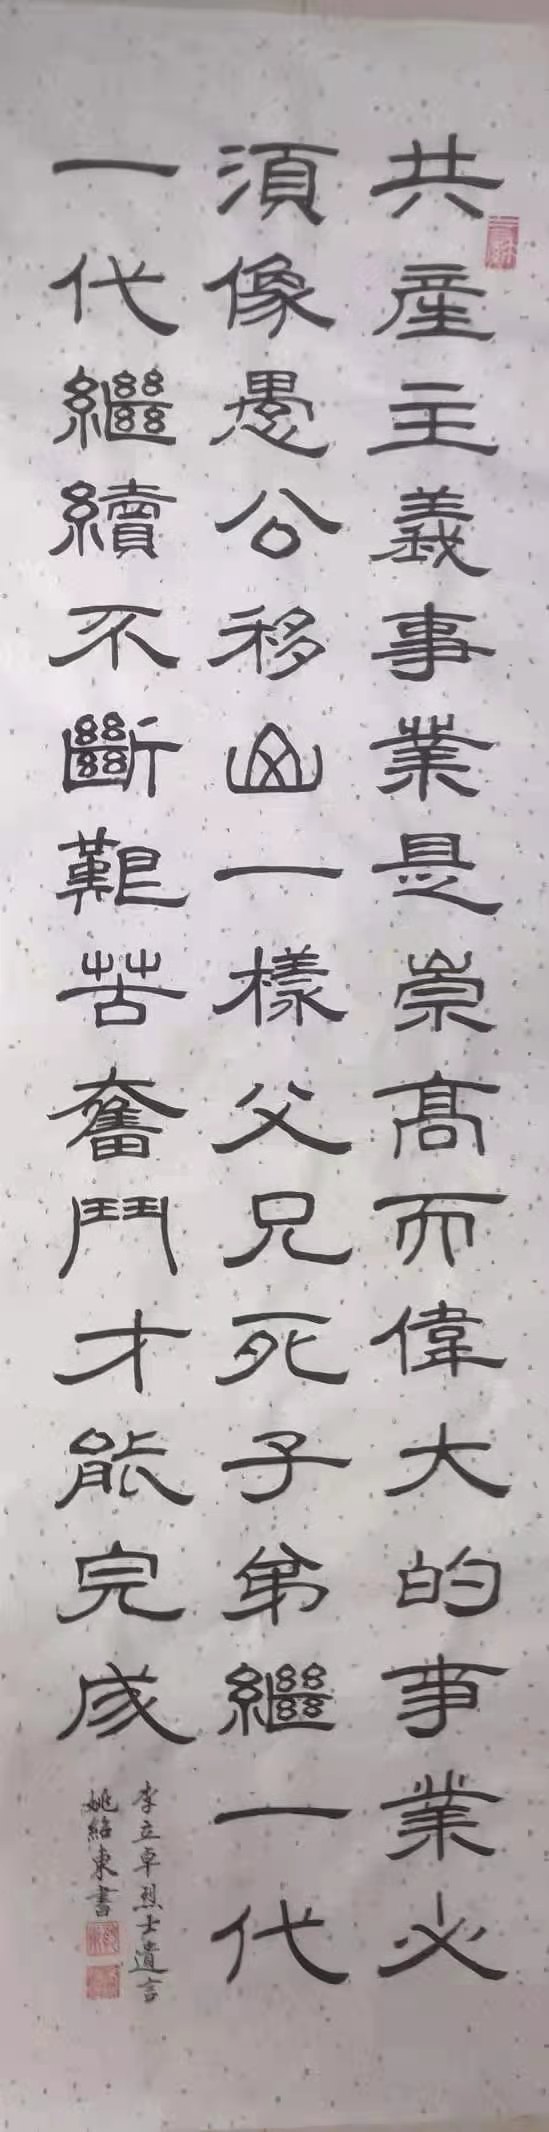 共産主義事業是崇高而偉大的事業必
須像愚公移山一樣父兄死子弟繼一代
一代繼續不斷艱苦奮鬥才能完成
李立卓烈士遺言
姚紹東書